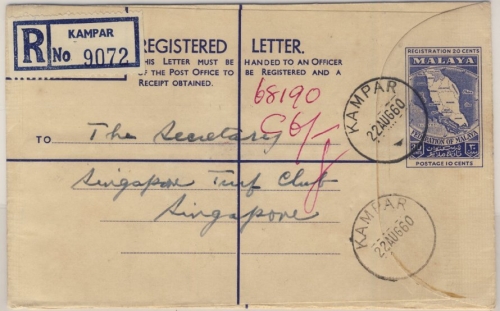 R
KAMPAR
No 9072
REGISTERED LETTER.
THIS LETTER MUST BE HANDED TO AN OFFICER
OF THE POST OFFICE TO BE REGISTERED AND A
RECEIPT OBTAINED.
REGISTRATION 20 CENTS
MALAYA
FEDERATION OF MALAYA
POSTAGE 10 CENTS
68190
KAMPAR
22AUG60
TO The Secretary
Singapore Turf Club
Singapore
KAMPAR
22AUG60